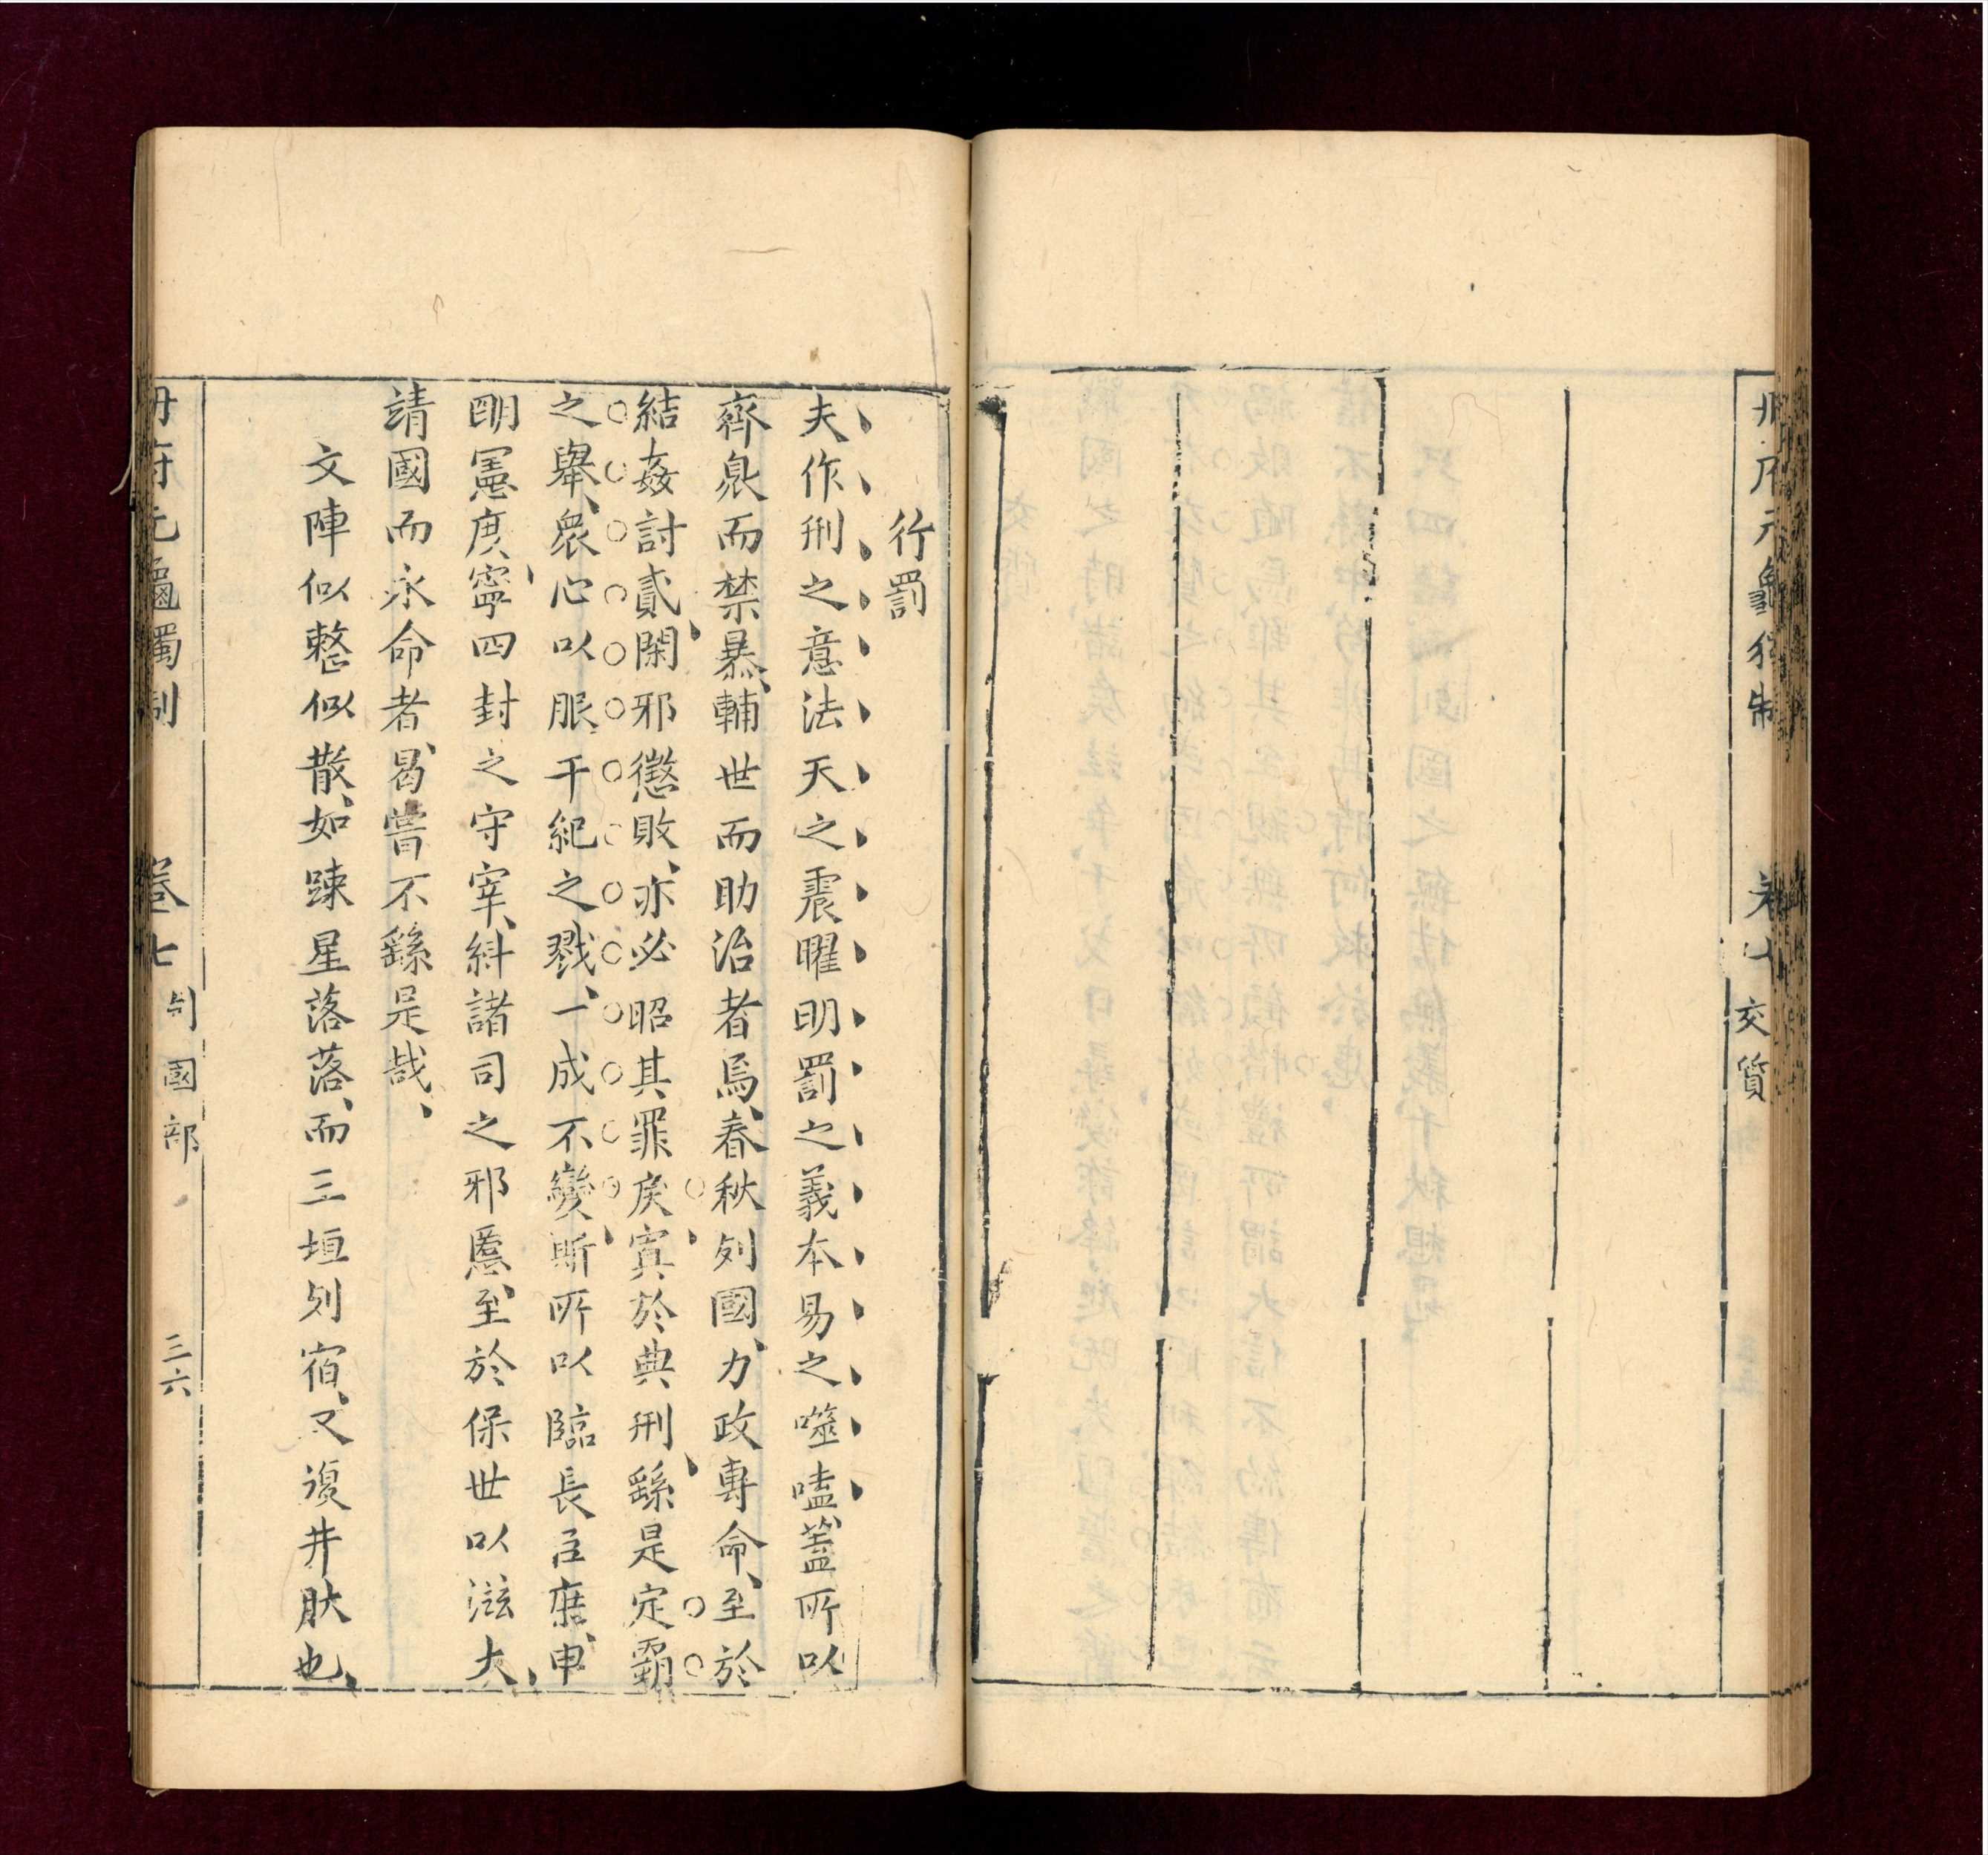 交質
行罰
夫作刑之意法天之震曜明罰之義本易之噬嗑蓋所以
齊衆而禁暴輔世而助治者焉春秋列國力政專命至於
結姦討貳閑邪懲敗亦必昭其罪戾寘於典刑繇是定霸
之舉衆心以服干紀之戮一成不變斯所以臨長臣庶申
明憲度寧四封之守宰糾諸司之邪慝至於保世以滋大
靖國而永命者曷嘗不繇是哉
文陣似整似散如踈星落落而三垣列宿又復井肰也
冊府元龜獨制
卷七
列國部
三六